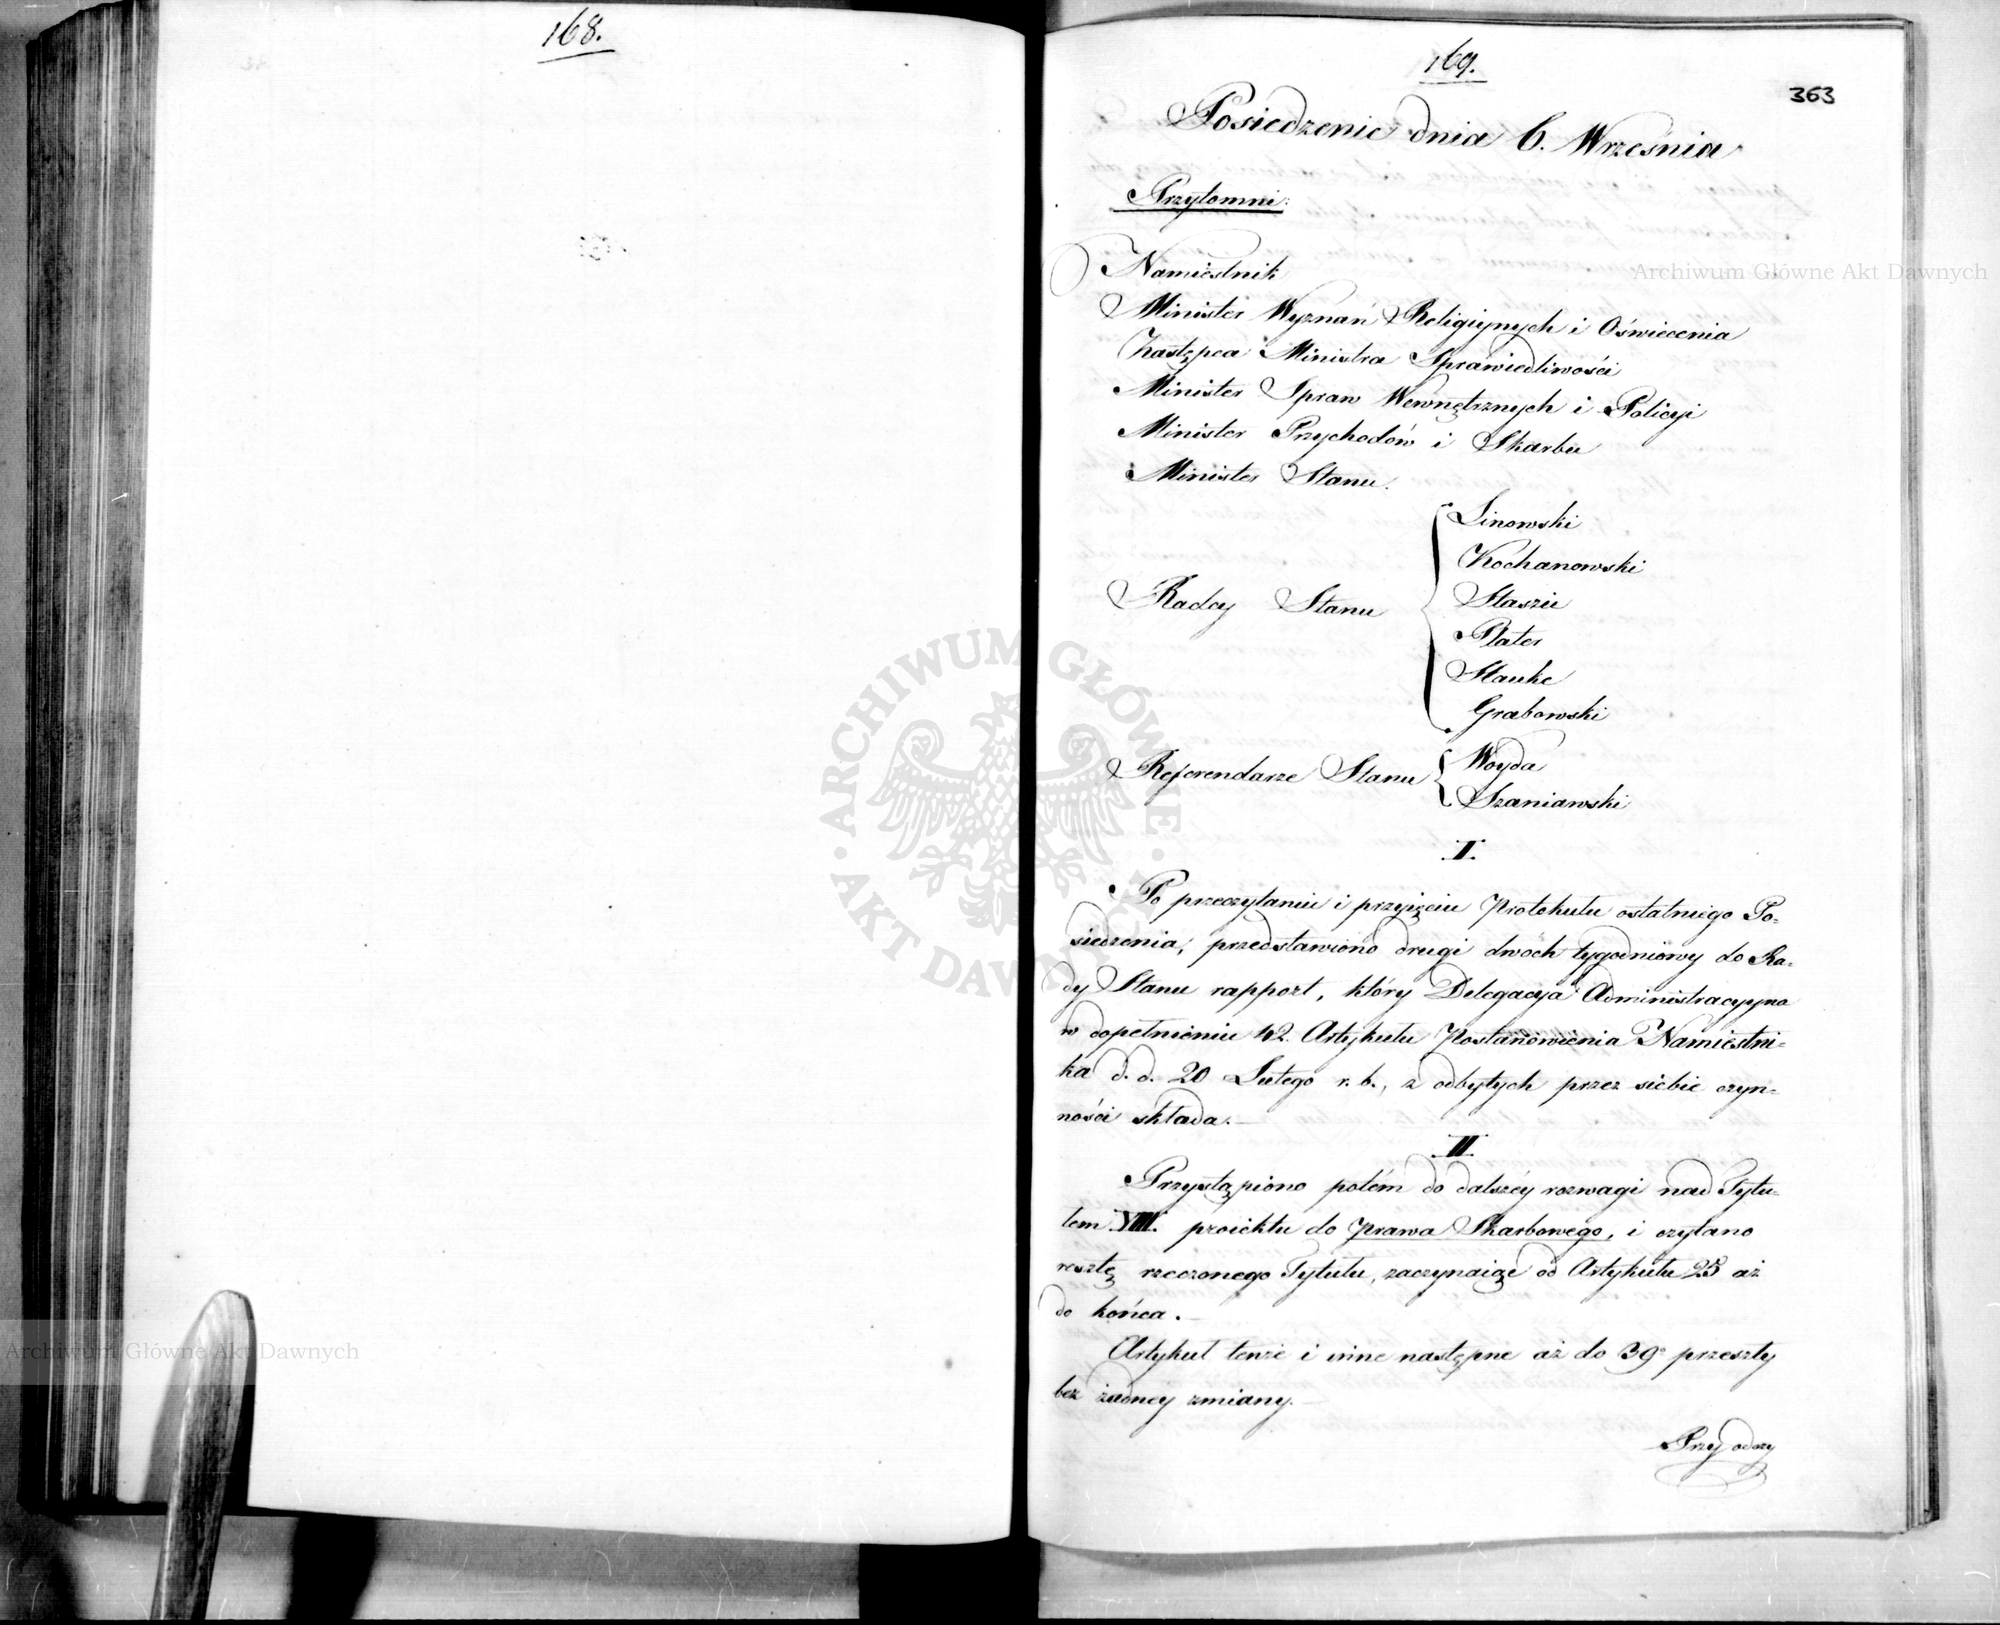 168.
169.
363
Posiedzenie dnia 6. Września
Przytomni:
Namiestnik
Minister Wyznań Religiynych i Oświecenia
Zastępca Ministra Sprawiedliwości
Minister Spraw Wewnętrznych i Policyi
Minister Przychodów i Skarbu
Minister Stanu.
Radcy Stanu
Linowski
Kochanowski
Staszic
Plater
Hauke
Grabowski
Referendarze Stanu
Woyda
Szaniawski
I.
Po przeczytaniu i przyięciu Protokułu ostatniego Po-
siedzenia, przedstawiono drugi dwóch tygodniowy do Ra-
dy Stanu rapport, który Delegacya Administracyyna
w dopełnieniu 42. Artykułu Postanowienia Namiestni-
ka d. d. 20 Lutego r. b., z odbytych przez siebie czyn-
ności składa.
II.
Przystąpiono potém do dalszéy rozwagi nad Tytu-
łem VIII. proiektu do Prawa Skarbowego, i czytano
resztę rzeczonego Tytułu, zaczynaiąc od Artykułu 25 aż
do końca.
Artykuł tenże i inne następne aż do 39o przeszły
bez żadney zmiany.
Przy odczy
Archiwum Główne Akt Dawnych
Archiwum Główne Akt Dawnych
ARCHIWUM GŁÓWNE AKT DAWNYCH